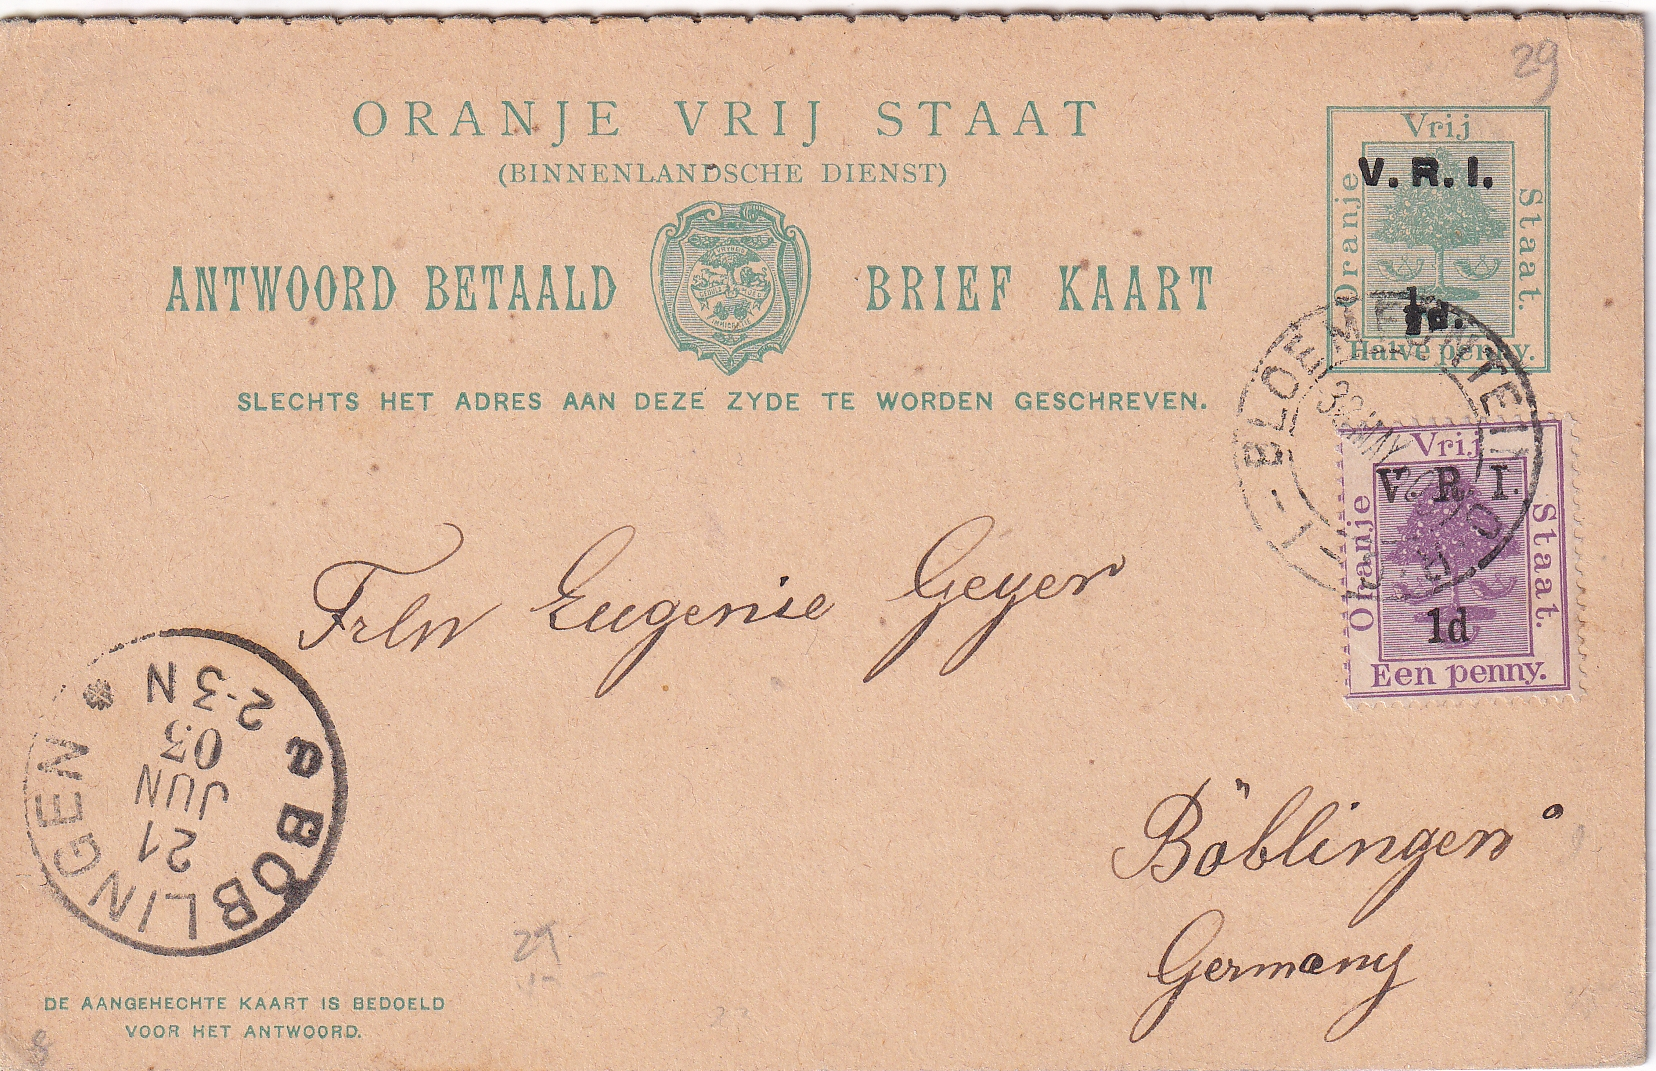 29
ORANJE VRIJ STAAT
(BINNENLANDSCHE DIENST)
ANTWOORD BETAALD BRIEF KAART
SLECHTS HET ADRES AAN DEZE ZYDE TE WORDEN GESCHREVEN.
Vrij
Oranje
Staat.
V.R.I.
½d.
Halve penny.
BLOEMFONTEIN
O.R.C.
Vrij
Oranje
Staat.
V. R. I.
1d
Een penny.
Frln Eugenie Geyer
Böblingen
Germany
BÖBLINGEN
21
JUN
03
2-3 N
29
DE AANGEHECHTE KAART IS BEDOELD
VOOR HET ANTWOORD.